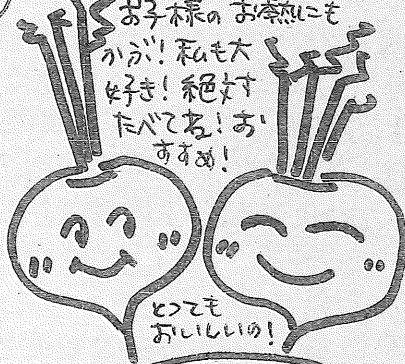 お子様の お熱にも
かぶ！私も大
好き！絶対
たべてね！お
すすめ！
とっても
おいしいの！